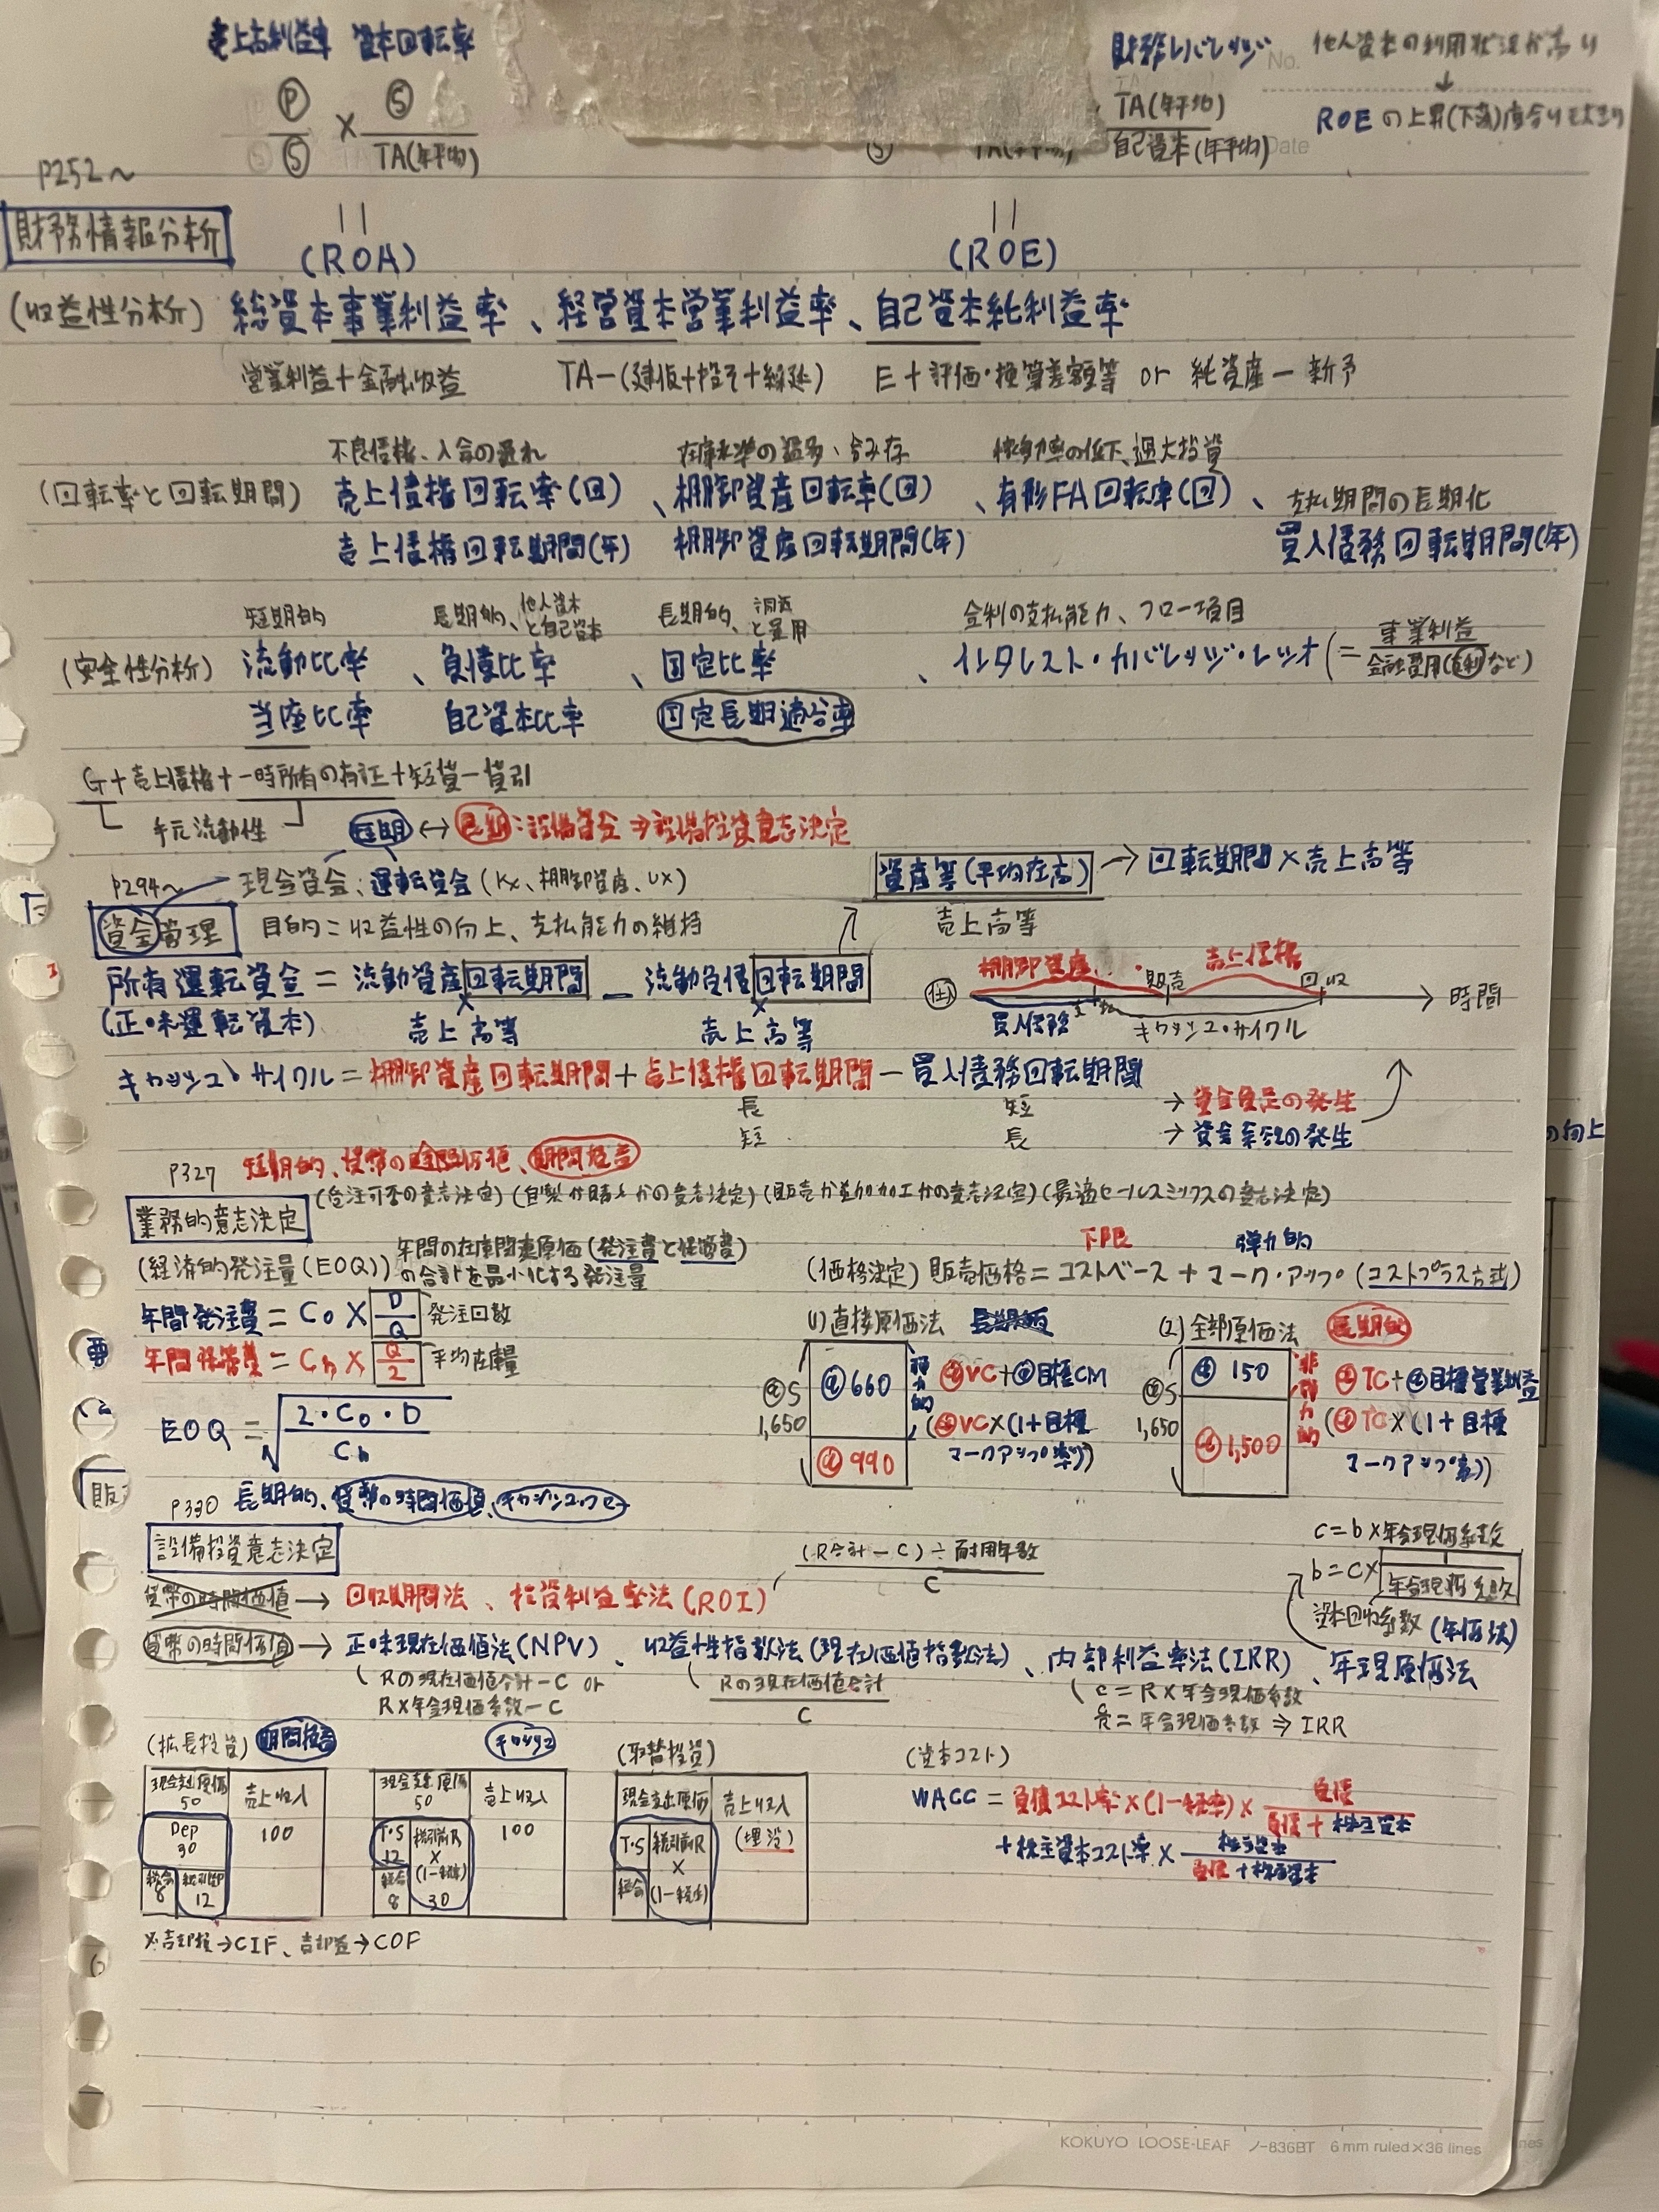 売上高利益率 資本回転率
財務レバレッジ No. 他人資本の利用状況が高い
↓
Ⓟ/Ⓢ × Ⓢ/TA(年平均)
TA(年平均)/自己資本(年平均) Date
ROEの上昇(下落)度合い
P252～
財務情報分析
|| (ROA)
|| (ROE)
(収益性分析) 総資本事業利益率、経営資本営業利益率、自己資本純利益率
営業利益+金融収益 TA-(建仮+投その+繰延) E+評価・換算差額等 or 純資産-新予
不良債権、入金の遅れ 在庫水準の過多、含み 稼働率の低下、過大投資
(回転率と回転期間) 売上債権回転率(回)、棚卸資産回転率(回)、有形FA回転率(回)、支払期間の長期化
売上債権回転期間(年) 棚卸資産回転期間(年) 買入債務回転期間(年)
短期的 長期的、他人資本と自己資本 長期的、調達と運用 金利の支払能力、フロー項目
(安全性分析) 流動比率、負債比率、固定比率、インタレスト・カバレッジ・レシオ(= 事業利益/金融費用(支利など))
当座比率 自己資本比率 固定長期適合率
G+売上債権+一時所有の有証+短貸-貸引
手元流動性 短期 ↔ 長期:設備資金 ⇒ 設備投資意志決定
P294～ 現金資金、運転資金(Kx、棚卸資産、UX)
資産等(平均在高) → 回転期間×売上高等
売上高等
資金管理 目的=収益性の向上、支払能力の維持
所有運転資金=流動資産回転期間-流動負債回転期間
(正味運転資本) × 売上高等 × 売上高等
棚卸資産 販売 売上債権 回収
買入債務 キャッシュ・サイクル → 時間
キャッシュ・サイクル=棚卸資産回転期間+売上債権回転期間-買入債務回転期間
長 短 → 資金不足の発生
短 長 → 資金余裕の発生
の向上
P327 短期的、貨幣の時間価値、期間損益
(受注可否の意志決定)(自製か購入かの意志決定)(販売か追加加工かの意志決定)(最適セールスミックスの意志決定)
業務的意志決定
(経済的発注量(EOQ)) 年間の在庫関連原価(発注費と保管費)の合計を最小化する発注量
下限 弾力的
(価格決定) 販売価格=コストベース+マーク・アップ(コストプラス方式)
年間発注費=Co×D/Q 発注回数
年間保管費=Ch×Q/2 平均在庫量
EOQ=√(2・Co・D/Ch)
(1)直接原価法
S 1,650 660 990
弾力的 VC+目標CM
(VC×(1+目標マークアップ率))
(2)全部原価法 長期的
S 1,650 150 1,500
非弾力的 TC+目標営業利益
(TC×(1+目標マークアップ率))
販
P330 長期的、貨幣の時間価値、キャッシュ・フロー
設備投資意志決定
(R合計-C)÷耐用年数/C
c=b×年金現価係数
b=c×1/年金現価係数
資本回収係数(年価法)
貨幣の時間価値 → 回収期間法、投資利益率法(ROI)
貨幣の時間価値 → 正味現在価値法(NPV)、収益性指数法(現在価値指数法)、内部利益率法(IRR)、年現原価法
Rの現在価値合計-C or
R×年金現価係数-C
Rの現在価値合計/C
c=R×年金現価係数
c/R=年金現価係数⇒IRR
(拡張投資) 期間損益 キャッシュ (取替投資) (資本コスト)
現金支出原価 50 売上収入 100 Dep 30 税金 8 税引後P 12
現金支出原価 50 売上収入 100 T・S 12 税金 8 税引前R×(1-税率) 30
現金支出原価 売上収入 (埋没) T・S 税金 税引前R×(1-税率)
WACC=負債コスト率×(1-税率)×負債/負債+株主資本
+株主資本コスト率×株主資本/負債+株主資本
※売却損→CIF、売却益→COF
KOKUYO LOOSE-LEAF ノ-836BT 6 mm ruled×36 lines